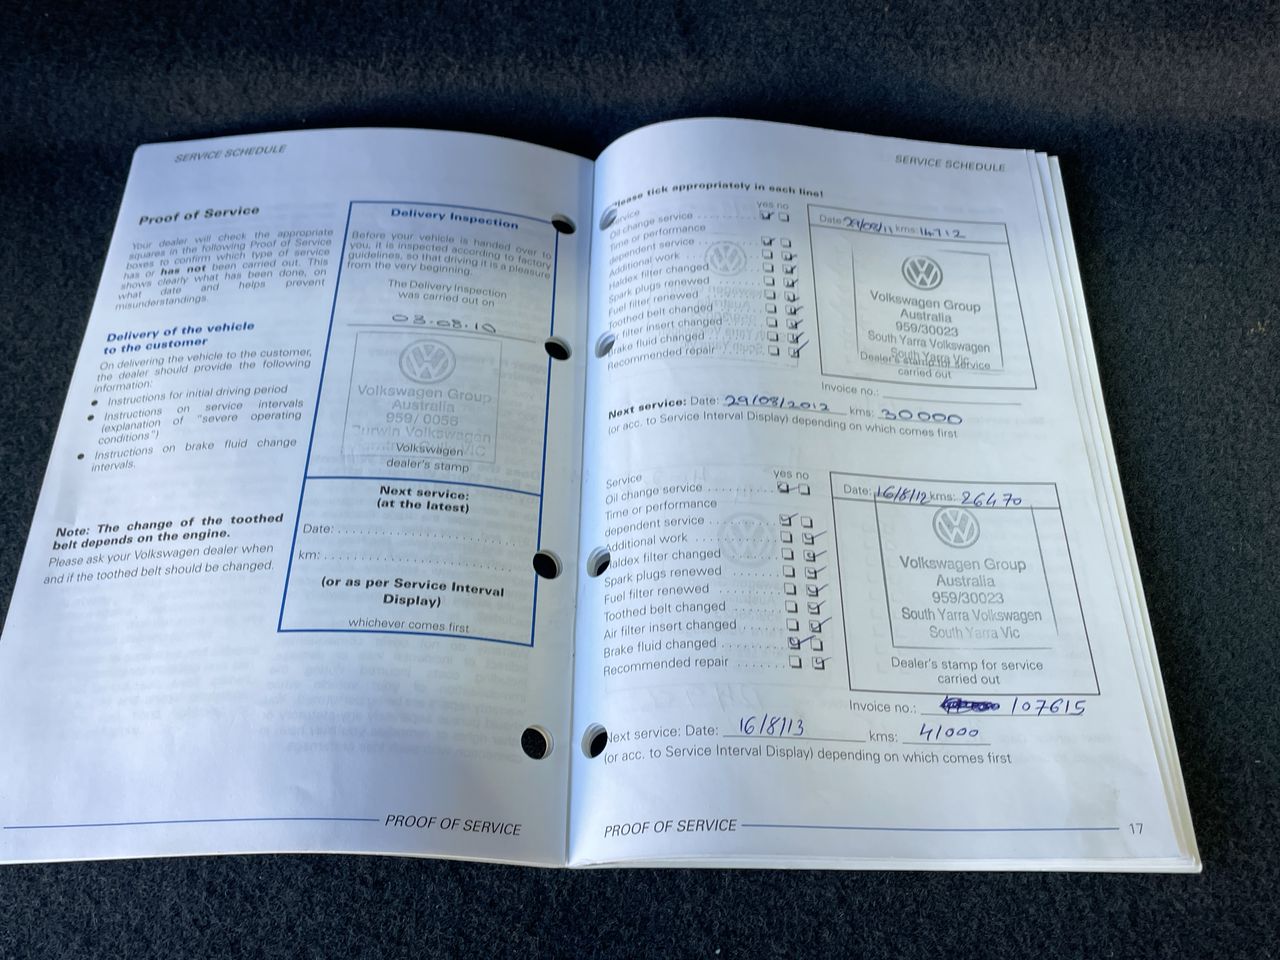 SERVICE SCHEDULE
Proof of Service
Your dealer will check the appropriate
squares in the following Proof of Service
boxes to confirm which type of service
has or has not been carried out. This
shows clearly what has been done, on
what date and helps prevent
misunderstandings.
Delivery of the vehicle
to the customer
On delivering the vehicle to the customer,
the dealer should provide the following
information:
● Instructions for initial driving period
● Instructions on service intervals
(explanation of "severe operating
conditions")
● Instructions on brake fluid change
intervals.
Note: The change of the toothed
belt depends on the engine.
Please ask your Volkswagen dealer when
and if the toothed belt should be changed.
Delivery Inspection
Before your vehicle is handed over to
you, it is inspected according to factory
guidelines, so that driving it is a pleasure
from the very beginning.
The Delivery Inspection
was carried out on
03.08.10
Volkswagen Group
Australia
959/ 0055
Volkswagen
VIC
Volkswagen
dealer's stamp
Next service:
(at the latest)
Date:
km:
(or as per Service Interval
Display)
whichever comes first
PROOF OF SERVICE
SERVICE SCHEDULE
Please tick appropriately in each line!
Service yes no
Oil change service
Time or performance
dependent service
Additional work
Haldex filter changed
Spark plugs renewed
Fuel filter renewed
Toothed belt changed
Air filter insert changed
Brake fluid changed
Recommended repair
Date: 29/08/11 kms: 14712
Volkswagen Group
Australia
959/30023
South Yarra Volkswagen
South Yarra Vic
Dealer's stamp for service
carried out
Invoice no.:
Next service: Date: 29/08/2012 kms: 30000
(or acc. to Service Interval Display) depending on which comes first
Service yes no
Oil change service
Time or performance
dependent service
Additional work
Haldex filter changed
Spark plugs renewed
Fuel filter renewed
Toothed belt changed
Air filter insert changed
Brake fluid changed
Recommended repair
Date: 16/8/12 kms: 26470
Volkswagen Group
Australia
959/30023
South Yarra Volkswagen
South Yarra Vic
Dealer's stamp for service
carried out
Invoice no.: 107615
Next service: Date: 16/8/13 kms: 41000
(or acc. to Service Interval Display) depending on which comes first
PROOF OF SERVICE 17